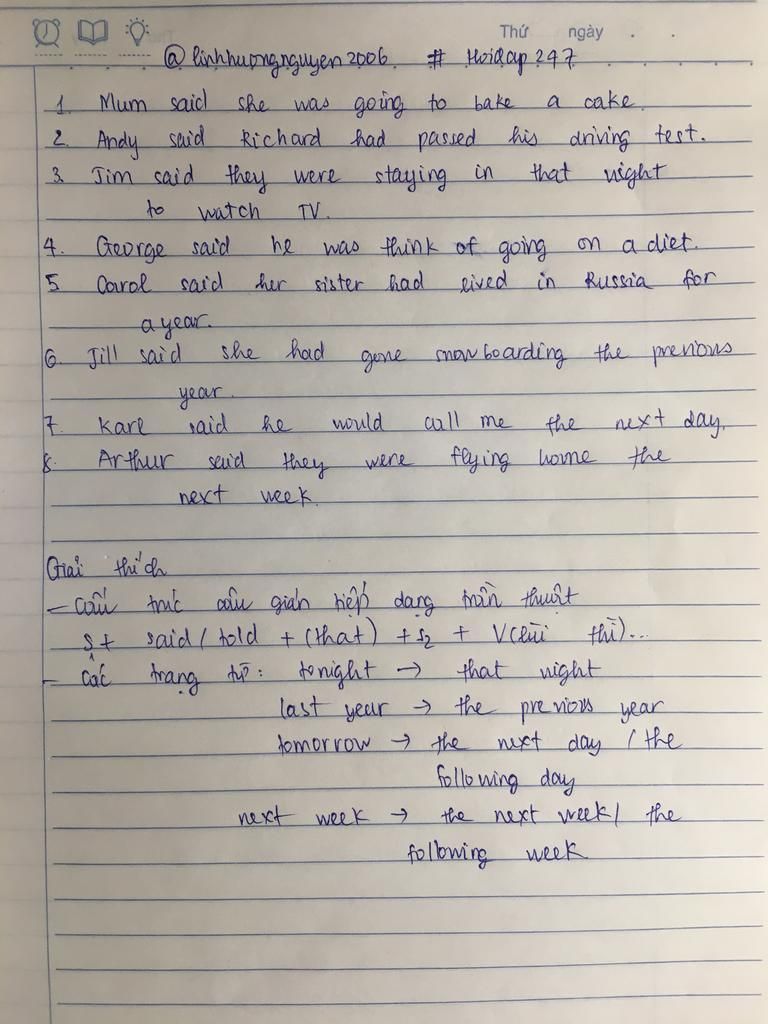 Thứ ngày . .
@linhhuongnguyen2006 # Hoidap247
1. Mum said she was going to bake a cake.
2. Andy said Richard had passed his driving test.
3. Jim said they were staying in that night
to watch TV.
4. George said he was think of going on a diet.
5 Carol said her sister had lived in Russia for
a year.
6. Jill said she had gone snowboarding the previous
year.
7. Karl said he would call me the next day.
8. Arthur said they were flying home the
next week.
Giải thích
- Cấu trúc câu gián tiếp dạng trần thuật
S + said / told + (that) + S2 + V(lùi thì)...
- Các trạng từ: tonight → that night
last year → the previous year
tomorrow → the next day / the
following day
next week → the next week / the
following week